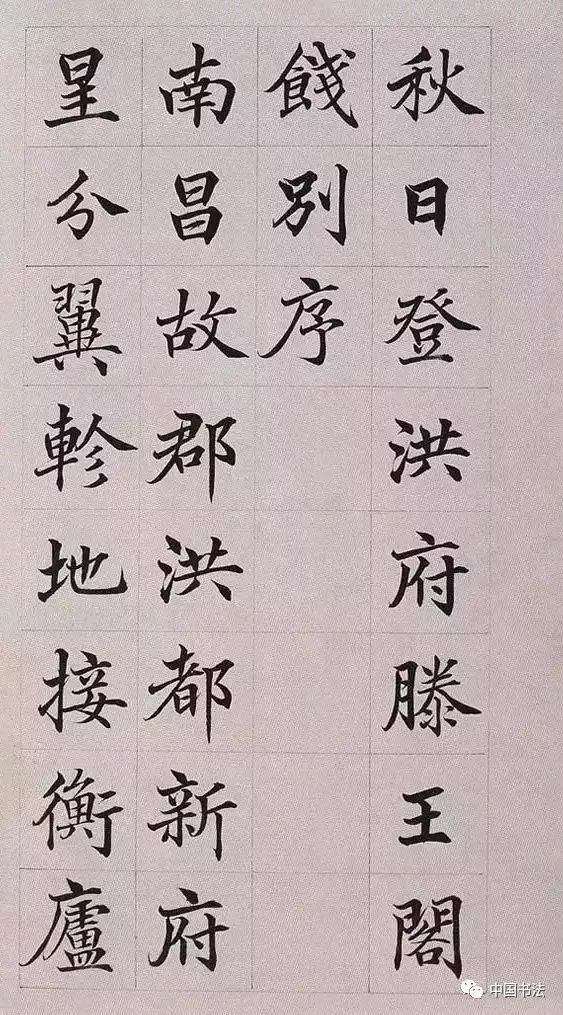 秋日登洪府滕王閣
餞別序
南昌故郡洪都新府
星分翼軫地接衡廬
中国书法